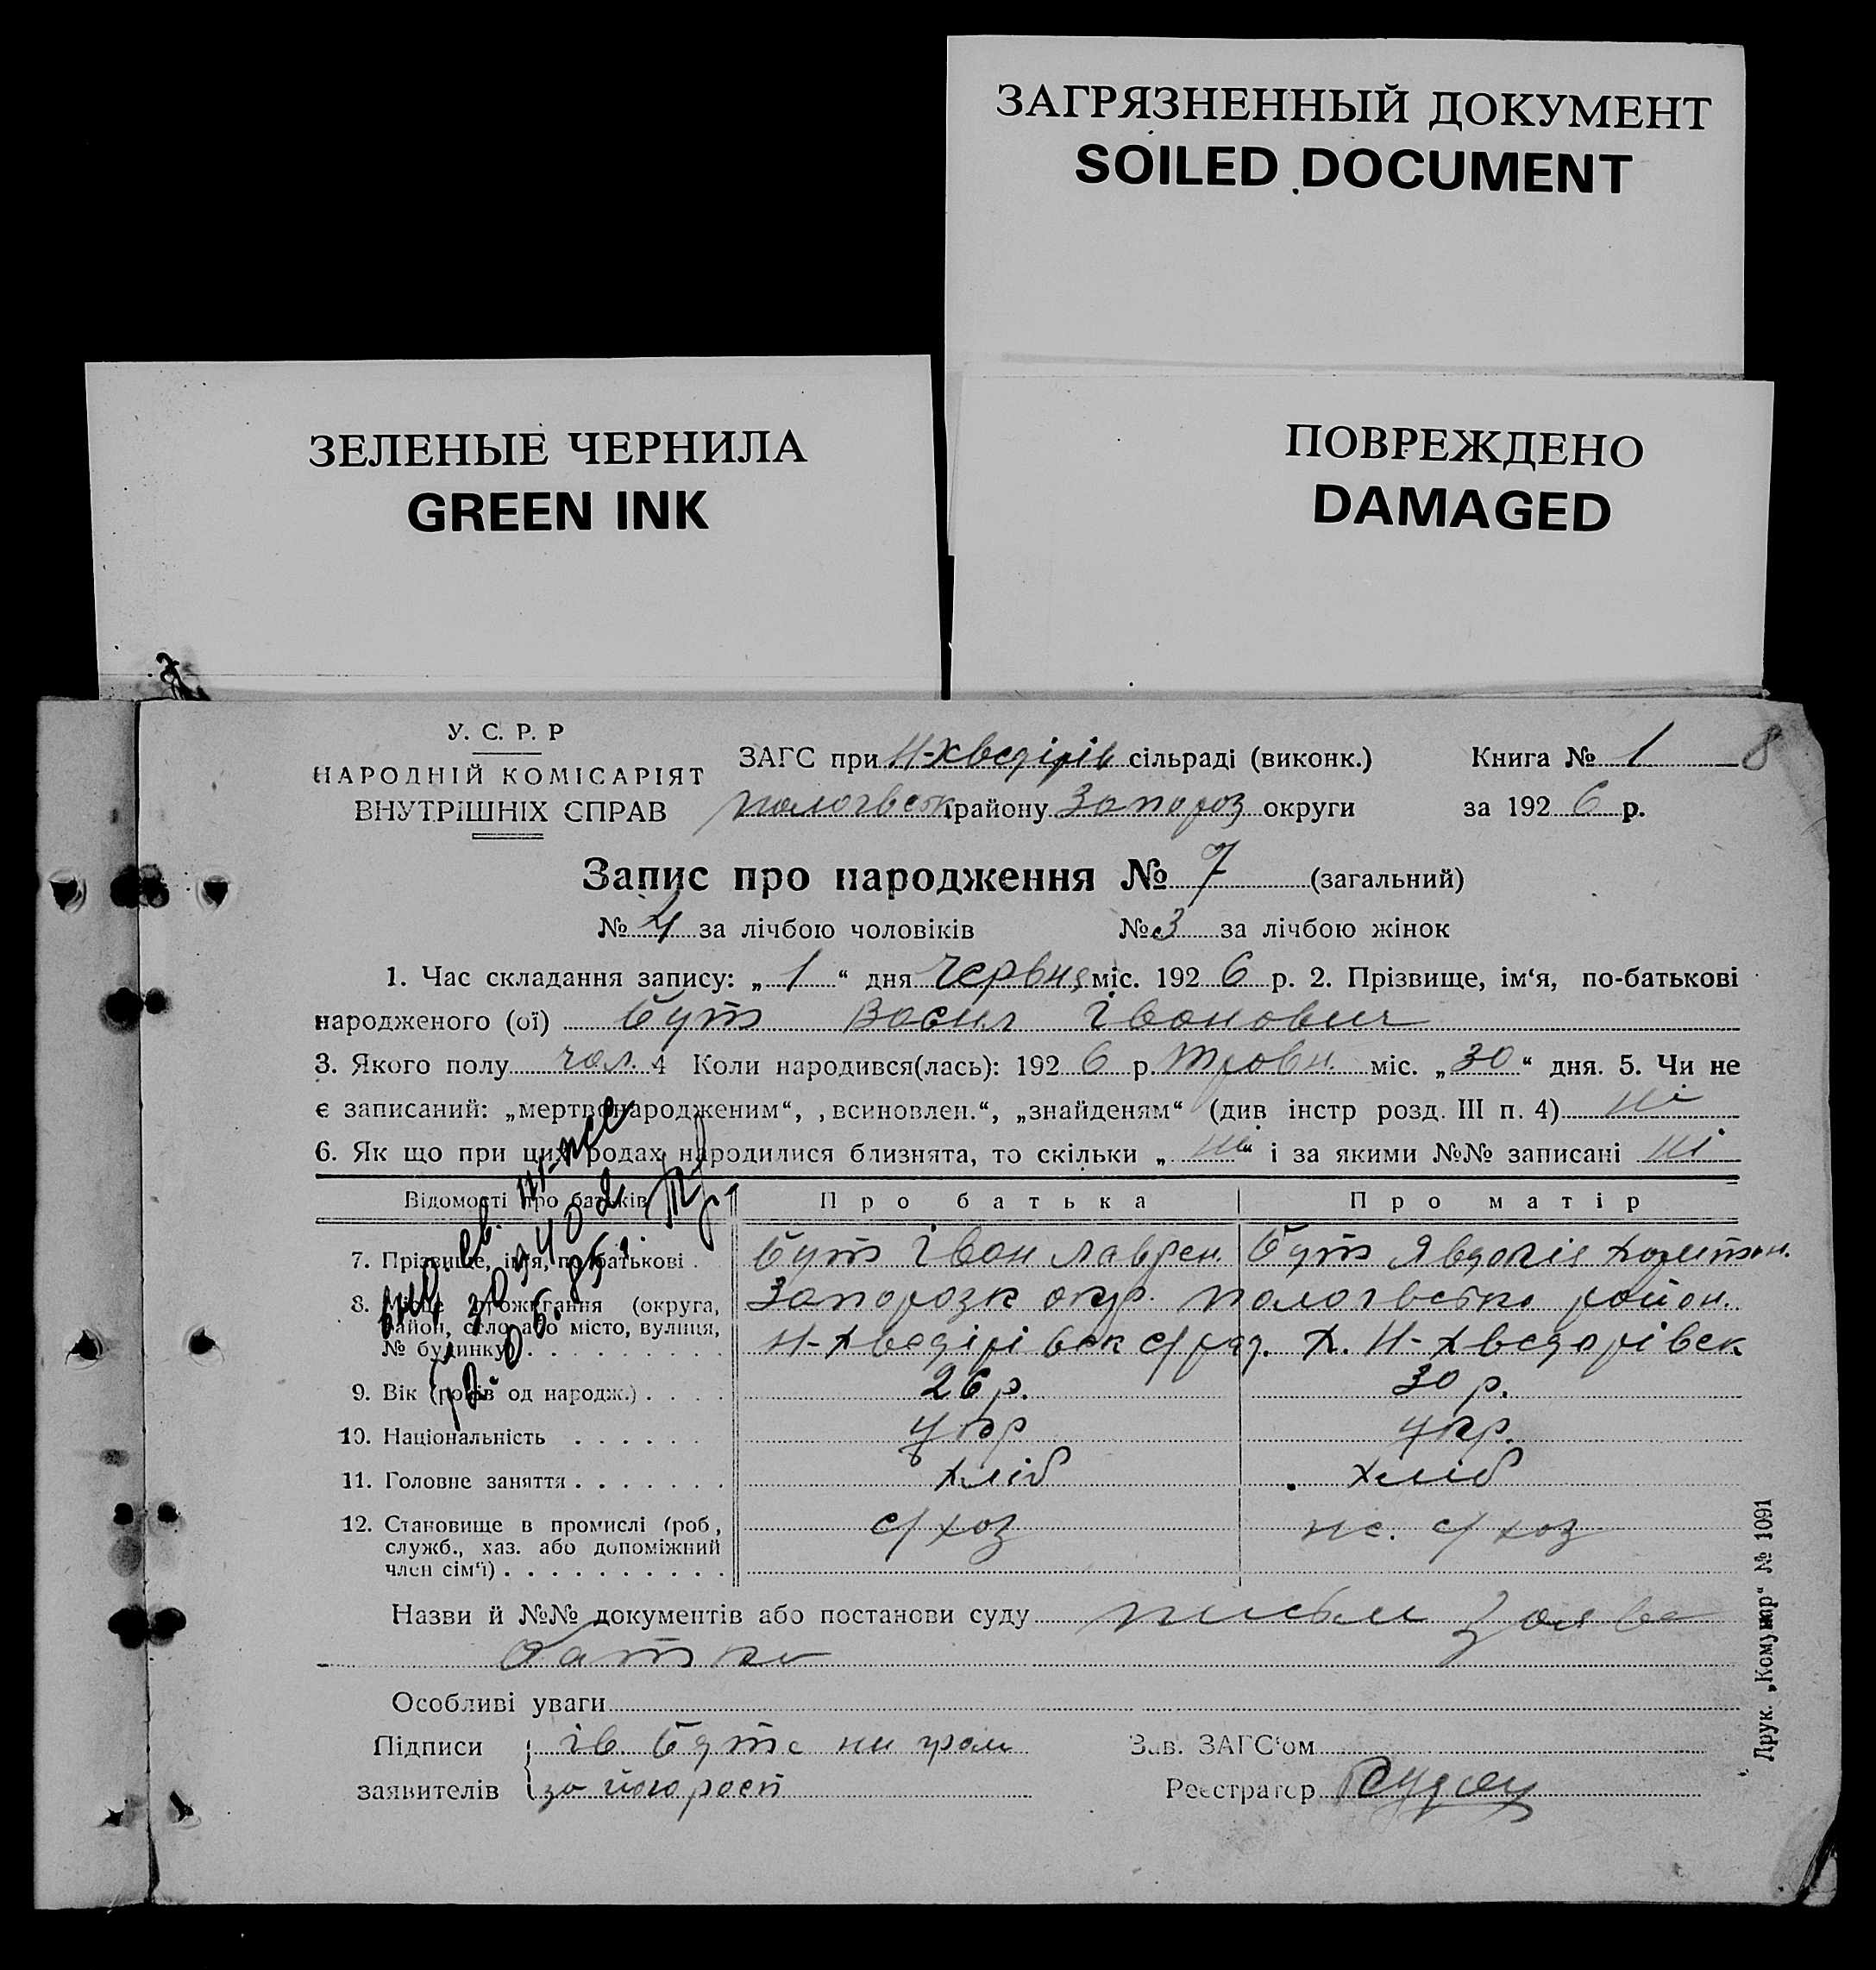 ЗАГРЯЗНЕННЫЙ ДОКУМЕНТ
SOILED DOCUMENT
ЗЕЛЕНЫЕ ЧЕРНИЛА
GREEN INK
ПОВРЕЖДЕНО
DAMAGED
У. С. Р. Р
НАРОДНІЙ КОМІСАРІЯТ
ВНУТРІШНІХ СПРАВ
ЗАГС при Н-Хведірів сільраді (виконк.)
пологвськ району Запороз округи
Книга № 1 8
за 1926 р.
Запис про народження № 7 (загальний)
№ 4 за лічбою чоловіків № 3 за лічбою жінок
1. Час складання запису: „ 1 “ дня Червня міс. 1926 р. 2. Прізвище, ім‘я, по-батькові
народженого (ої) Бут Васил Іванович
3. Якого полу чол. 4 Коли народився(лась): 1926 р. Травн. міс. „30“ дня. 5. Чи не
є записаний: „мертвонародженим“, „всиновлен.“, „знайденям“ (див інстр розд. III п. 4) ні
6. Як що при цих родах народилися близнята, то скільки „ ні “ і за якими №№ записані ні
Відомості про батьків Про батька Про матір
7. Прізвище, ім‘я, по батькові . Бут Іван Лаврен. Бут Явдокія
8. Місце прожигання (округа, район, село або місто, вулиця, № будинку) Запорозк окр. пологвсько район.
Н-Хведірівск с/рад. х. Н-Хведорівск
9. Вік (років од народж.) 26 р. 30 р.
10. Національність укр укр.
11. Головне заняття хліб хліб
12. Становище в промислі (роб, служб., хаз. або допоміжний член сім‘ї) с/хоз с/хоз
Назви й №№ документів або постанови суду письм заява
батька
Особливі уваги
Підписи заявителів Ів. Бут
за його
Зав. ЗАГС‘ом
Реєстратор
Друк. „Комунар“ № 1091